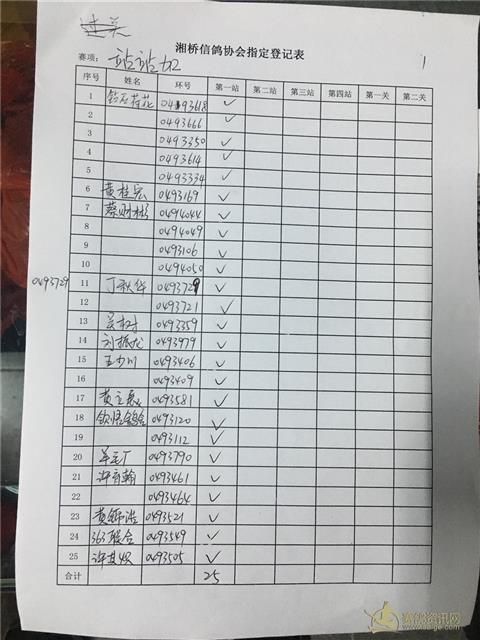 湘桥信鸽协会指定登记表
赛项: 站站加 1
序号 姓名 环号 第一站 第二站 第三站 第四站 第一关 第二关
1 钻石荷花 0493618 ✓
2 0493666 ✓
3 0493350 ✓
4 0493614 ✓
5 0493334 ✓
6 黄桂宏 0493169 ✓
7 蔡财彬 0494044 ✓
8 0494049 ✓
9 0493106 ✓
10 0494050 ✓
0493729 11 丁秋华 0493729 ✓
12 0493721 ✓
13 0493359 ✓
14 刘振龙 0493979 ✓
15 0493406 ✓
16 0493409 ✓
17 0493581 ✓
18 0493120 ✓
19 0493112 ✓
20 0493790 ✓
21 0493461 ✓
22 0493464 ✓
23 0493521 ✓
24 363联合 0493549 ✓
25 0493505 ✓
合计 25
赛鸽资讯网
www.saige.com